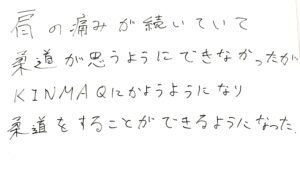 肩の痛みが続いていて
柔道が思うようにできなかったが
KINMAQにかようようになり
柔道をすることができるようになった.